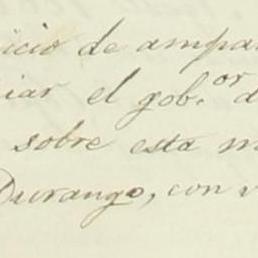 icio de ampa
iar el gob.or d
sobre esta m
Durango, con v